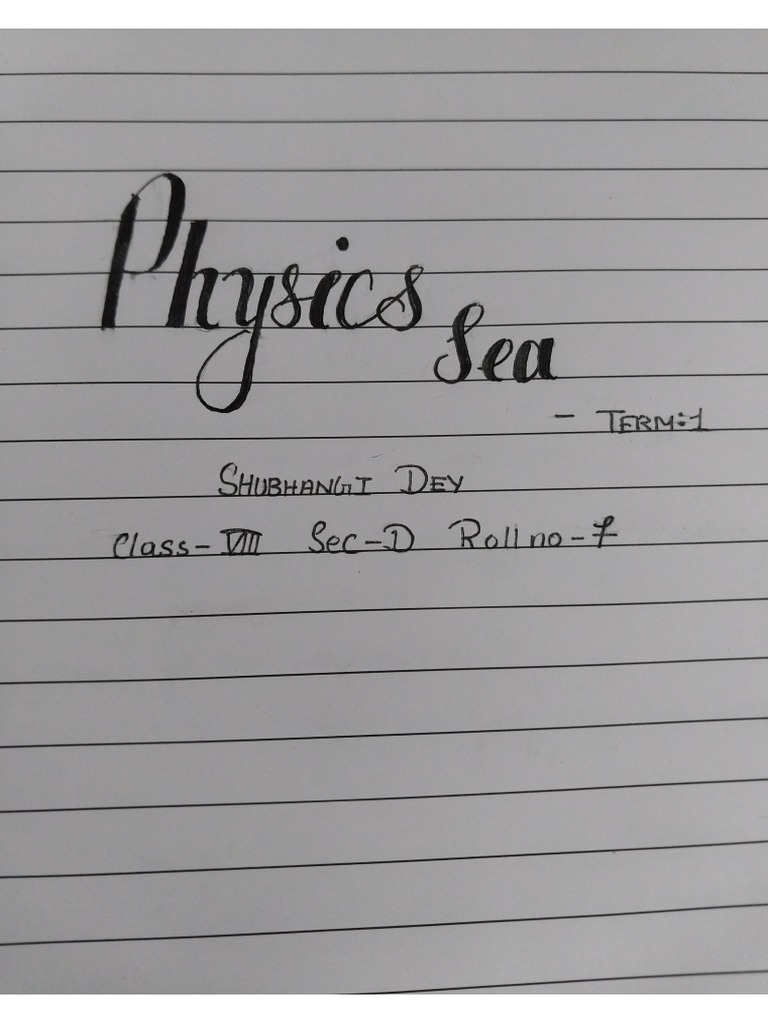 Physics
Sea
- TERM:1
SHUBHANGI DEY
Class-VIII Sec-D Roll no-7